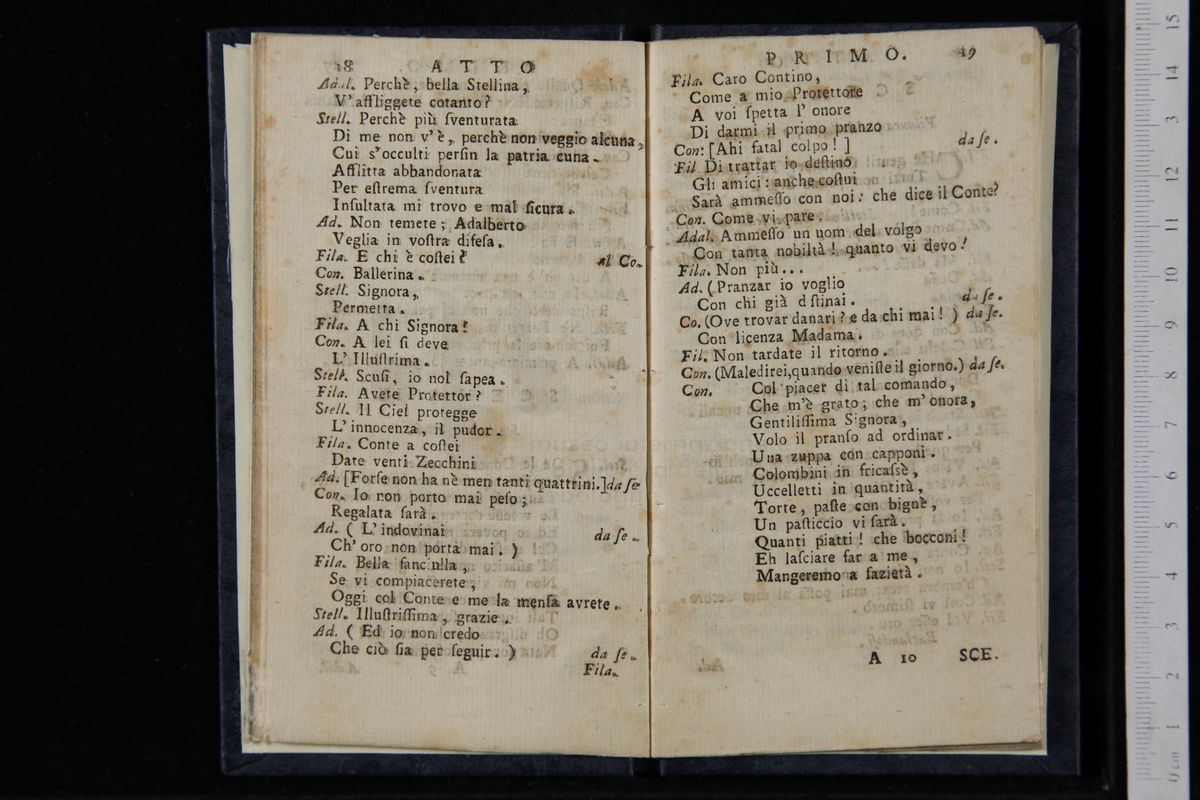 18 ATTO
Adal. Perchè, bella Stellina,
V' affliggete cotanto?
Stell. Perchè più ſventurata
Di me non v'è, perchè non veggio alcuna,
Cui s'occulti perſin la patria cuna.
Afflitta abbandonata
Per eſtrema ſventura
Inſultata mi trovo e mal ſicura.
Ad. Non temete; Adalberto
Veglia in voſtra difeſa.
Fila. E chi è coſtei? al Co.
Con. Ballerina.
Stell. Signora,
Permetta.
Fila. A chi Signora!
Con. A lei ſi deve
L' Illuſtrima.
Stell. Scuſi, io nol ſapea.
Fila. Avete Protettor?
Stell. Il Ciel protegge
L' innocenza, il pudor.
Fila. Conte a coſtei
Date venti Zecchini
Ad. [Forſe non ha nè men tanti quattrini.] da ſe
Con. Io non porto mai peſo;
Regalata ſarà.
Ad. ( L' indovinai da ſe.
Ch' oro non porta mai. )
Fila. Bella fanciulla,
Se vi compiacerete,
Oggi col Conte e me la menſa avrete.
Stell. Illuſtriſſima, grazie.
Ad. ( Ed io non credo
Che ciò ſia per ſeguir. ) da ſe.
Fila.
PRIMO. 19
Fila. Caro Contino,
Come a mio Protettore
A voi ſpetta l' onore
Di darmi il primo pranzo
Con: [Ahi fatal colpo! ] da ſe.
Fil. Di trattar io deſtino
Gli amici: anche coſtui
Sarà ammeſſo con noi: che dice il Conte?
Con. Come vi pare.
Adal. Ammeſſo un uom del volgo
Con tanta nobiltà! quanto vi devo!
Fila. Non più...
Ad. (Pranzar io voglio
Con chi già d ſtinai. da ſe.
Co. (Ove trovar danari? e da chi mai! ) da ſe.
Con licenza Madama.
Fil. Non tardate il ritorno.
Con. (Maledirei, quando veniſte il giorno.) da ſe.
Con. Col piacer di tal comando,
Che m'è grato; che m' onora,
Gentiliſſima Signora,
Volo il pranſo ad ordinar.
Una zuppa con capponi.
Colombini in fricaſsè,
Uccelletti in quantità,
Torte, paſte con bignè,
Un paſticcio vi ſarà.
Quanti piatti! che bocconi!
Eh laſciare far a me,
Mangeremo a ſazietà.
A 10 SCE.